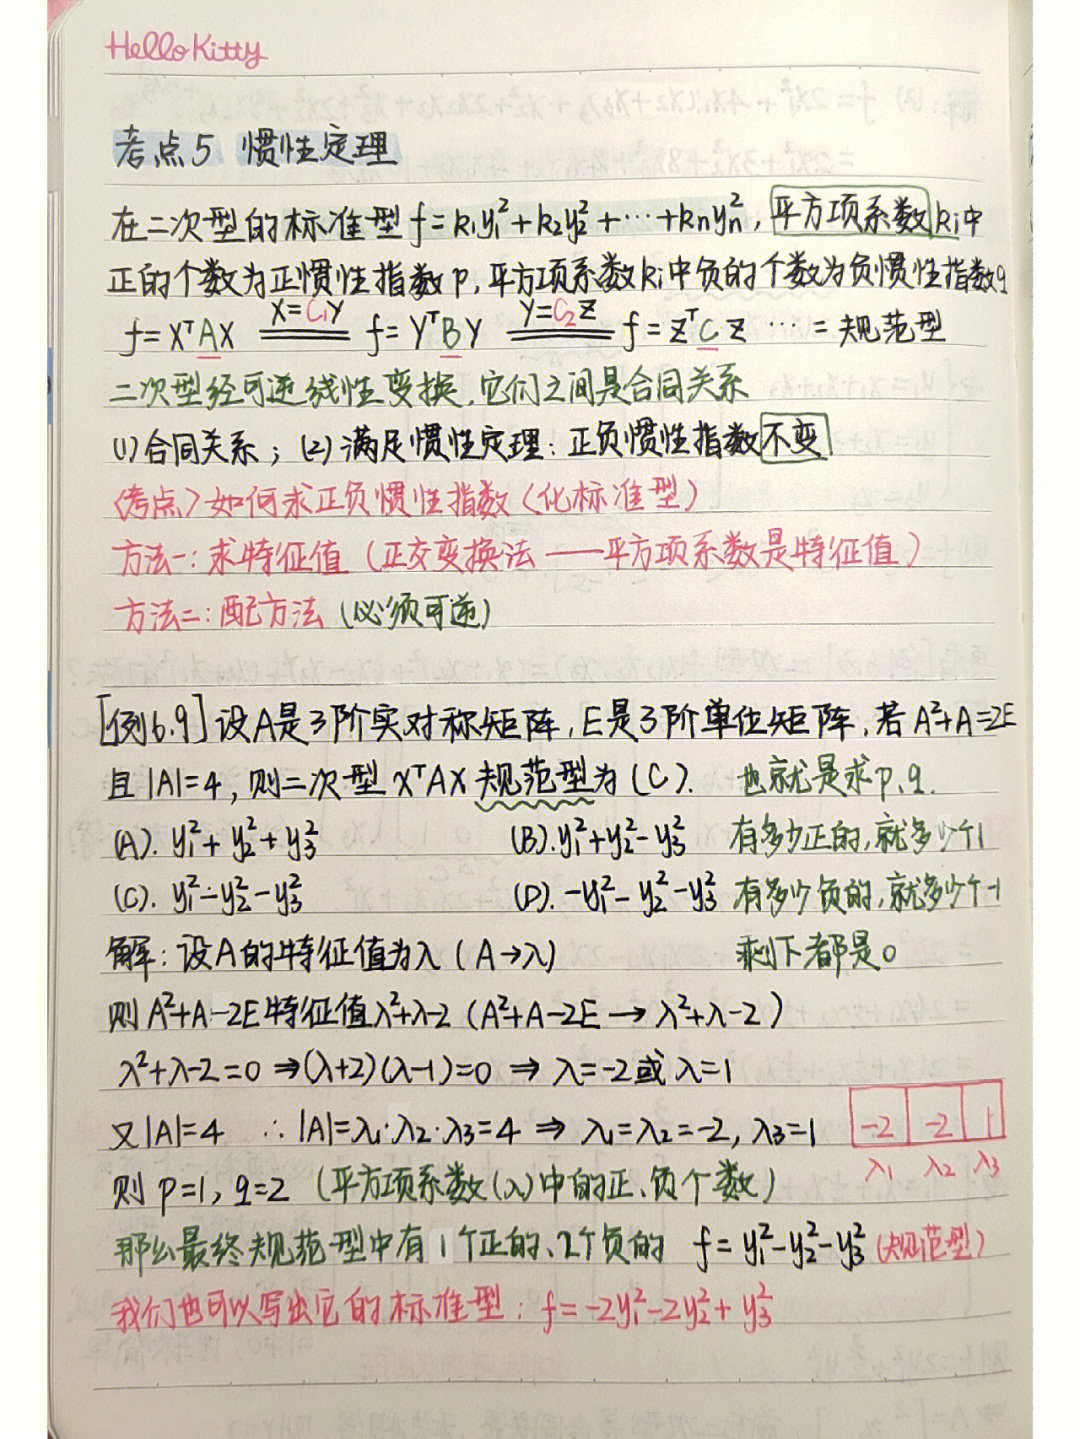 Hello Kitty
考点5 惯性定理
在二次型的标准型 f=k₁y₁²+k₂y₂²+…+kₙyₙ², 平方项系数kᵢ中
正的个数为正惯性指数p, 平方项系数kᵢ中负的个数为负惯性指数q
f=XᵀAX X=C₁Y f=YᵀBY Y=C₂Z f=ZᵀCZ … = 规范型
二次型经可逆线性变换, 它们之间是合同关系
(1)合同关系; (2)满足惯性定理: 正负惯性指数不变
〈考点〉如何求正负惯性指数〈化标准型〉
方法一: 求特征值 (正交变换法 ——平方项系数是特征值)
方法二: 配方法 (必须可逆)
[例6.9] 设A是3阶实对称矩阵, E是3阶单位矩阵, 若A²+A=2E
且|A|=4, 则二次型 XᵀAX 规范型为(C). 也就是求p、q.
(A). y₁²+y₂²+y₃² (B). y₁²+y₂²-y₃² 有多少正的, 就多少个1
(C). y₁²-y₂²-y₃² (D). -y₁²-y₂²-y₃² 有多少负的, 就多少个-1
解: 设A的特征值为λ (A→λ) 剩下都是0
则A²+A-2E特征值λ²+λ-2 (A²+A-2E → λ²+λ-2)
λ²+λ-2=0 ⇒ (λ+2)(λ-1)=0 ⇒ λ=-2或λ=1
又|A|=4 ∴|A|=λ₁·λ₂·λ₃=4 ⇒ λ₁=λ₂=-2, λ₃=1 -2 -2 1
λ₁ λ₂ λ₃
则 p=1, q=2 (平方项系数(λ)中的正、负个数)
那么最终规范型中有1个正的、2个负的 f=y₁²-y₂²-y₃² (规范型)
我们也可以写出它的标准型: f=-2y₁²-2y₂²+y₃²